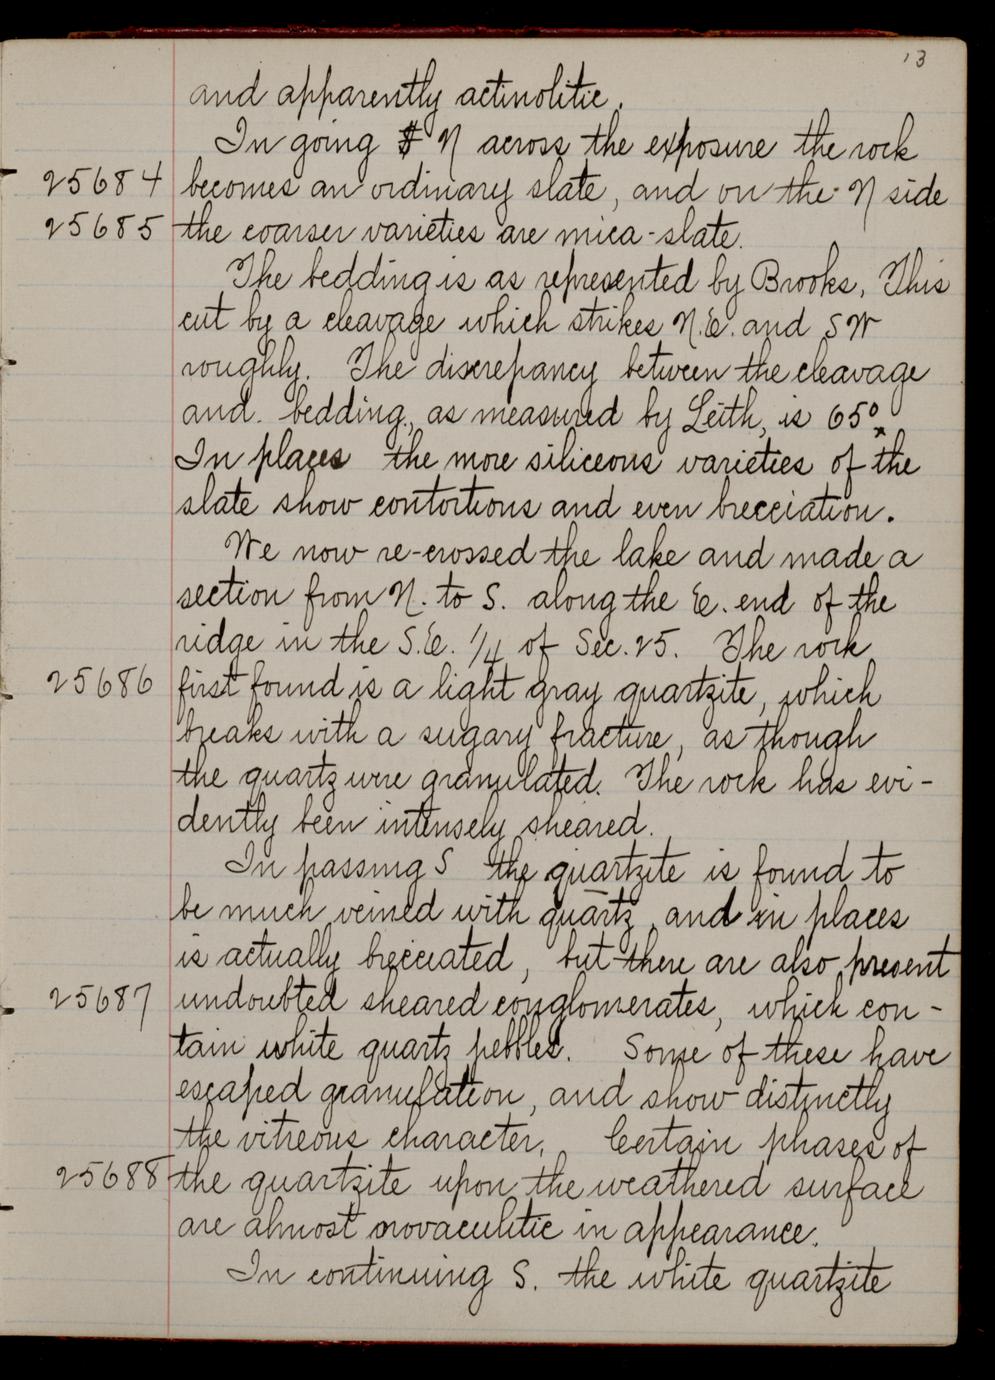 13
and apparently actinolitic.
In going N across the exposure the rock
25684 becomes an ordinary slate, and on the N side
25685 the coarser varieties are mica-slate.
The bedding is as represented by Brooks, This
cut by a cleavage which strikes N.E. and SW
roughly. The discrepancy between the cleavage
and bedding, as measured by Leith, is 65°.
In places the more siliceous varieties of the
slate show contortions and even brecciation.
We now re-crossed the lake and made a
section from N. to S. along the E. end of the
ridge in the S.E. 1/4 of Sec. 25. The rock
25686 first found is a light gray quartzite, which
breaks with a sugary fracture, as though
the quartz were granulated. The rock has evi-
dently been intensely sheared.
In passing S the quartzite is found to
be much veined with quartz, and in places
is actually brecciated, but there are also present
25687 undoubted sheared conglomerates, which con-
tain white quartz pebbles. Some of these have
escaped granulation, and show distinctly
the vitreous character. Certain phases of
25688 the quartzite upon the weathered surface
are almost novaculitic in appearance.
In continuing S. the white quartzite